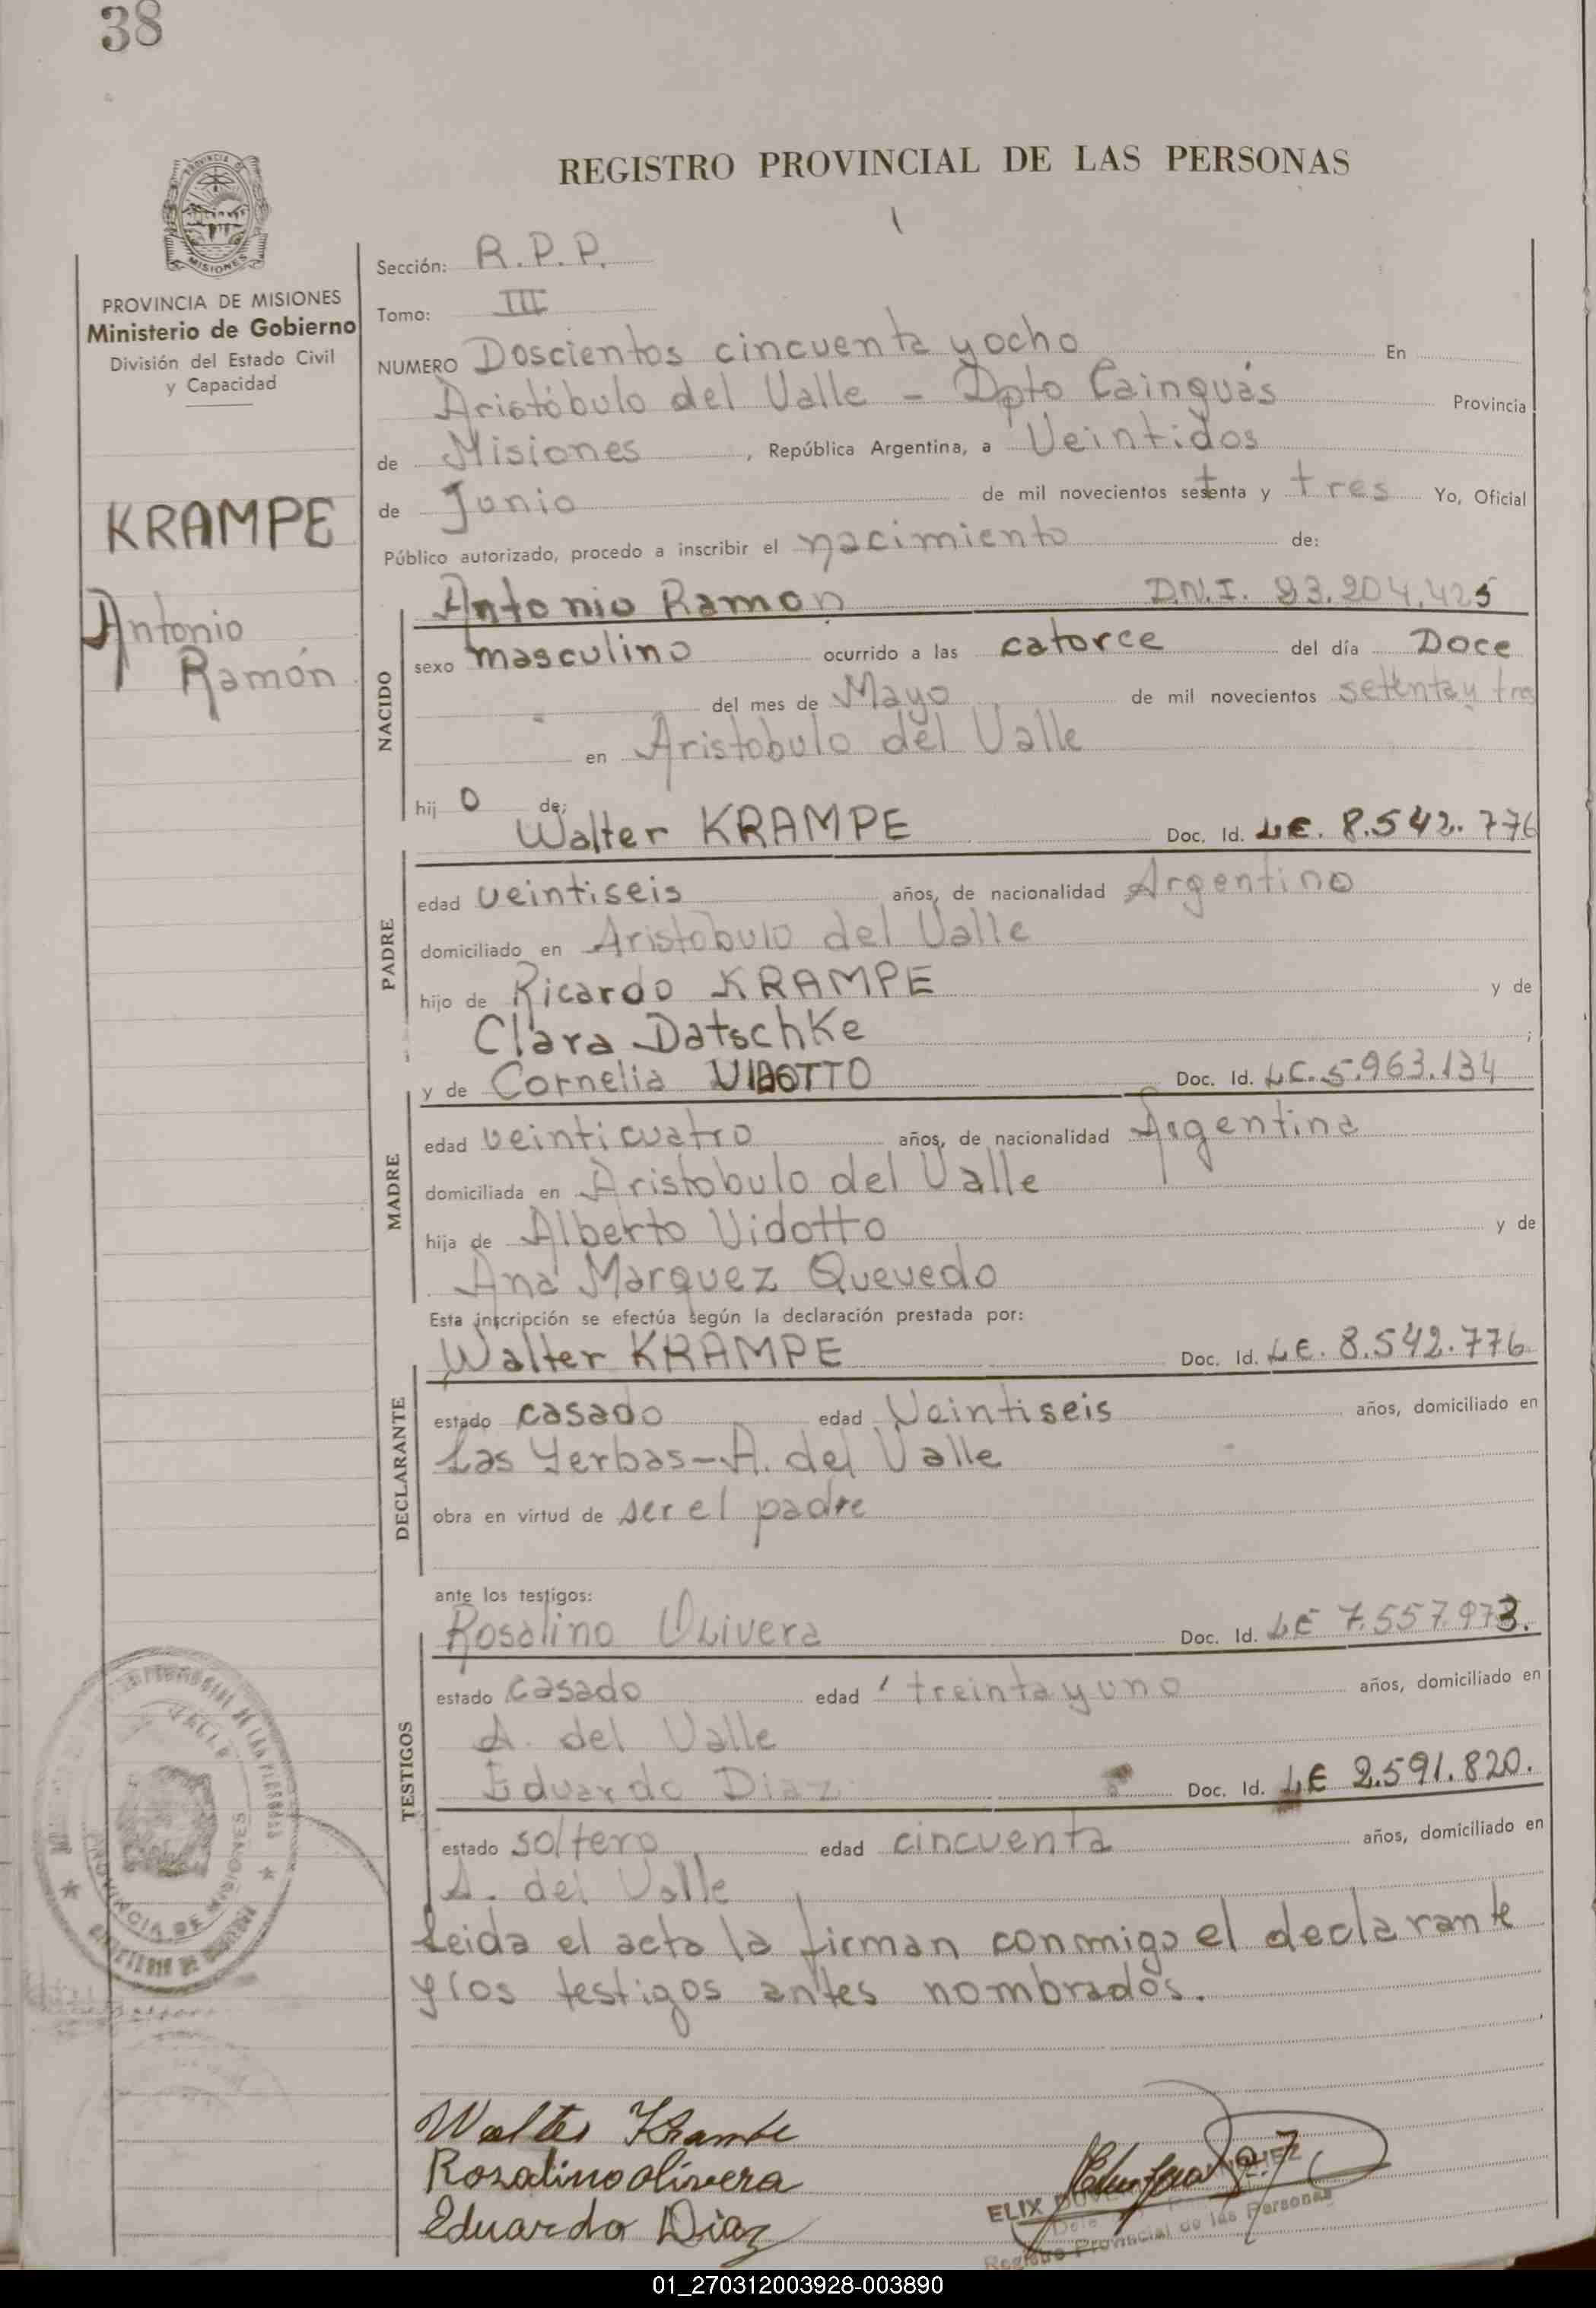 38
REGISTRO PROVINCIAL DE LAS PERSONAS
PROVINCIA DE MISIONES
Ministerio de Gobierno
División del Estado Civil
y Capacidad
KRAMPE
Antonio
Ramón
Sección: R.P.P.
Tomo: III
NUMERO Doscientos cincuenta y ocho En
Aristóbulo del Valle - Dpto Cainguás Provincia
de Misiones, República Argentina, a Veintidos
de Junio de mil novecientos setenta y tres Yo, Oficial
Público autorizado, procedo a inscribir el nacimiento de:
NACIDO
Antonio Ramon D.N.I. 23.204.425
sexo masculino ocurrido a las catorce del día Doce
del mes de Mayo de mil novecientos setenta y tres
en Aristobulo del Valle
hij o de:
PADRE
Walter KRAMPE Doc. Id. L.E. 8.542.776
edad veintiseis años, de nacionalidad Argentino
domiciliado en Aristobulo del Valle
hijo de Ricardo KRAMPE y de
Clara Datschke ;
MADRE
y de Cornelia VIDOTTO Doc. Id. L.C. 5.963.134
edad veinticuatro años, de nacionalidad Argentina
domiciliada en Aristobulo del Valle
hija de Alberto Vidotto y de
Ana Marquez Quevedo
Esta inscripción se efectúa según la declaración prestada por:
DECLARANTE
Walter KRAMPE Doc. Id. L.E. 8.542.776
estado casado edad Veintiseis años, domiciliado en
Las Yerbas-A. del Valle
obra en virtud de ser el padre
ante los testigos:
TESTIGOS
Rosalino Olivera Doc. Id. LE 7.557.973.
estado casado edad treinta y uno años, domiciliado en
A. del Valle
Eduardo Diaz Doc. Id. LE 2.591.820.
estado soltero edad cincuenta años, domiciliado en
A. del Valle
Leida el acta la firman conmigo el declarante
y los testigos antes nombrados.
Walter Krampe
Rosalino Olivera
Eduardo Diaz
ELIX
Registro Provincial de las Personas
PROVINCIA DE MISIONES
01_270312003928-003890